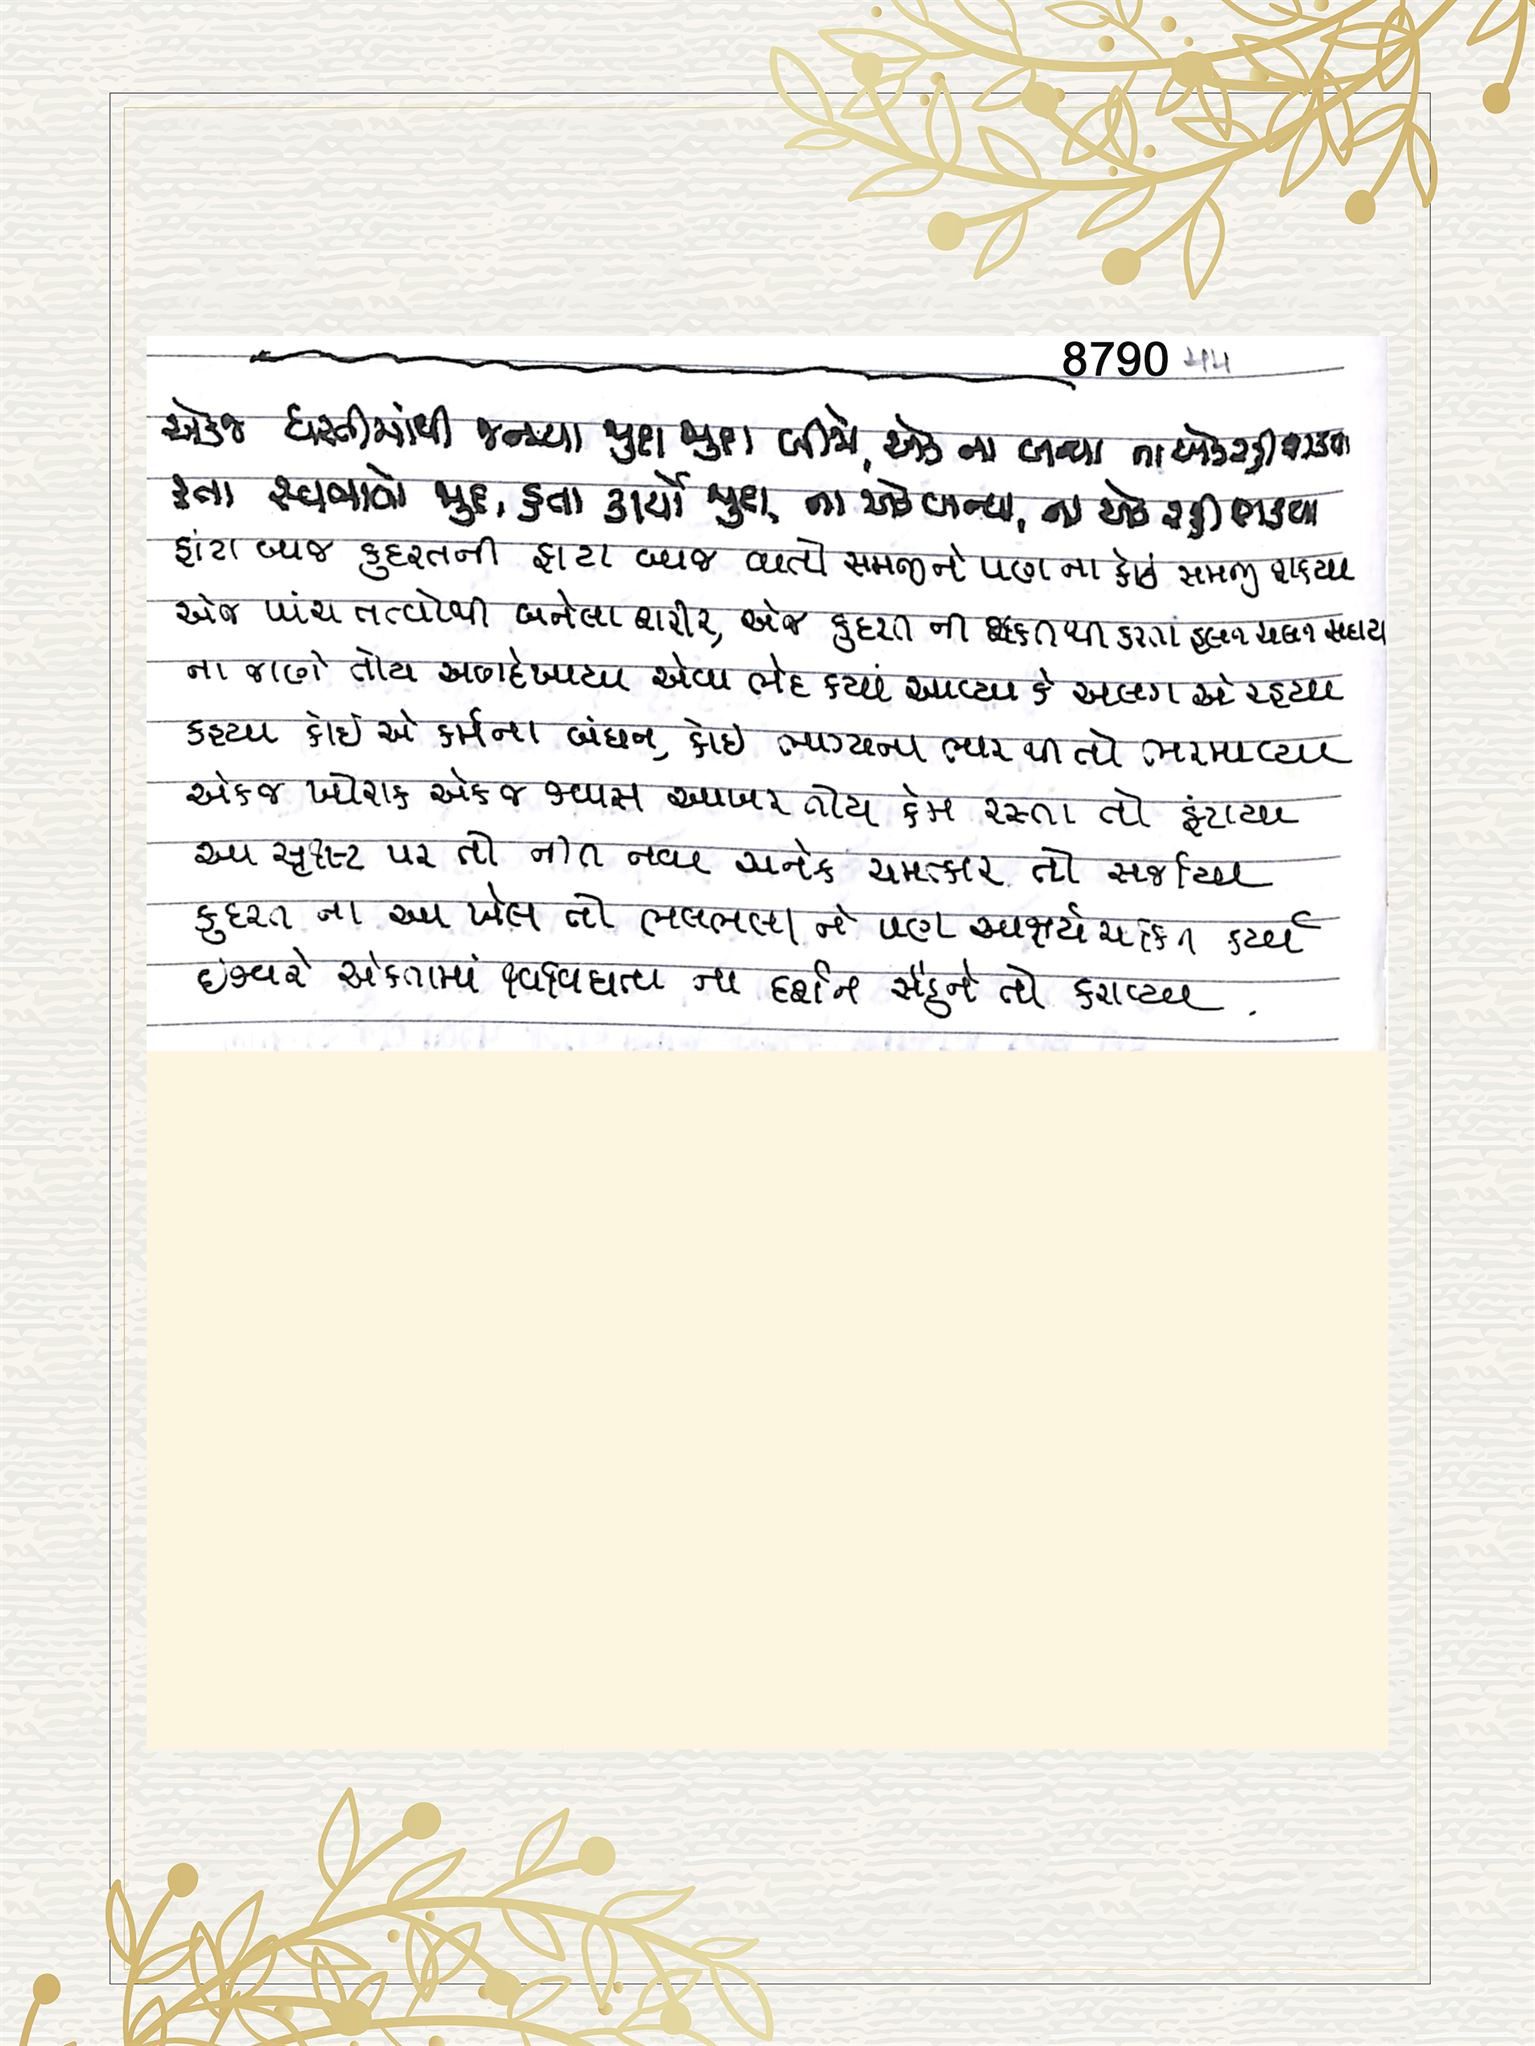 8790
એકજ ધરતીમાંથી જન્મ્યા જુદા જુદા બીજો, એક ના બન્યા ના એક રહી શક્યા
હતા સ્વભાવો જુદા, હતા કાર્યો જુદા, ના એક બન્યા, ના એક રહી શક્યા
ફાંટા બાજ કુદરતની ફાટા બાજ વાતો સમજીને પણ ના કોઈ સમજી શક્યા
એજ પાંચ તત્વોથી બનેલા શરીર, એજ કુદરત ની શક્તિથી કરતાં હલન ચલન સદાય
ના જાણે તોય અણદેખાયા એવા ભેદ ક્યાં આવ્યા કે અલગ એ રહ્યા
કહ્યા કોઈએ કર્મના બંધન, કોઈ ભાગ્યના ભાર થી તો ભરમાવ્યા
એકજ ખોરાક એકજ શ્વાસ આખર તોય કેમ રસ્તા તો ફંટાયા
આ સૃષ્ટિ પર તો નીત નવા અનેક ચમત્કાર તો સર્જાયા
કુદરત ના આ ખેલ તો ભલભલા ને પણ આશ્ચર્ય ચકિત કર્યા
ઈશ્વરે એકતામાં વિવિધતા ના દર્શન સૌને તો કરાવ્યા .